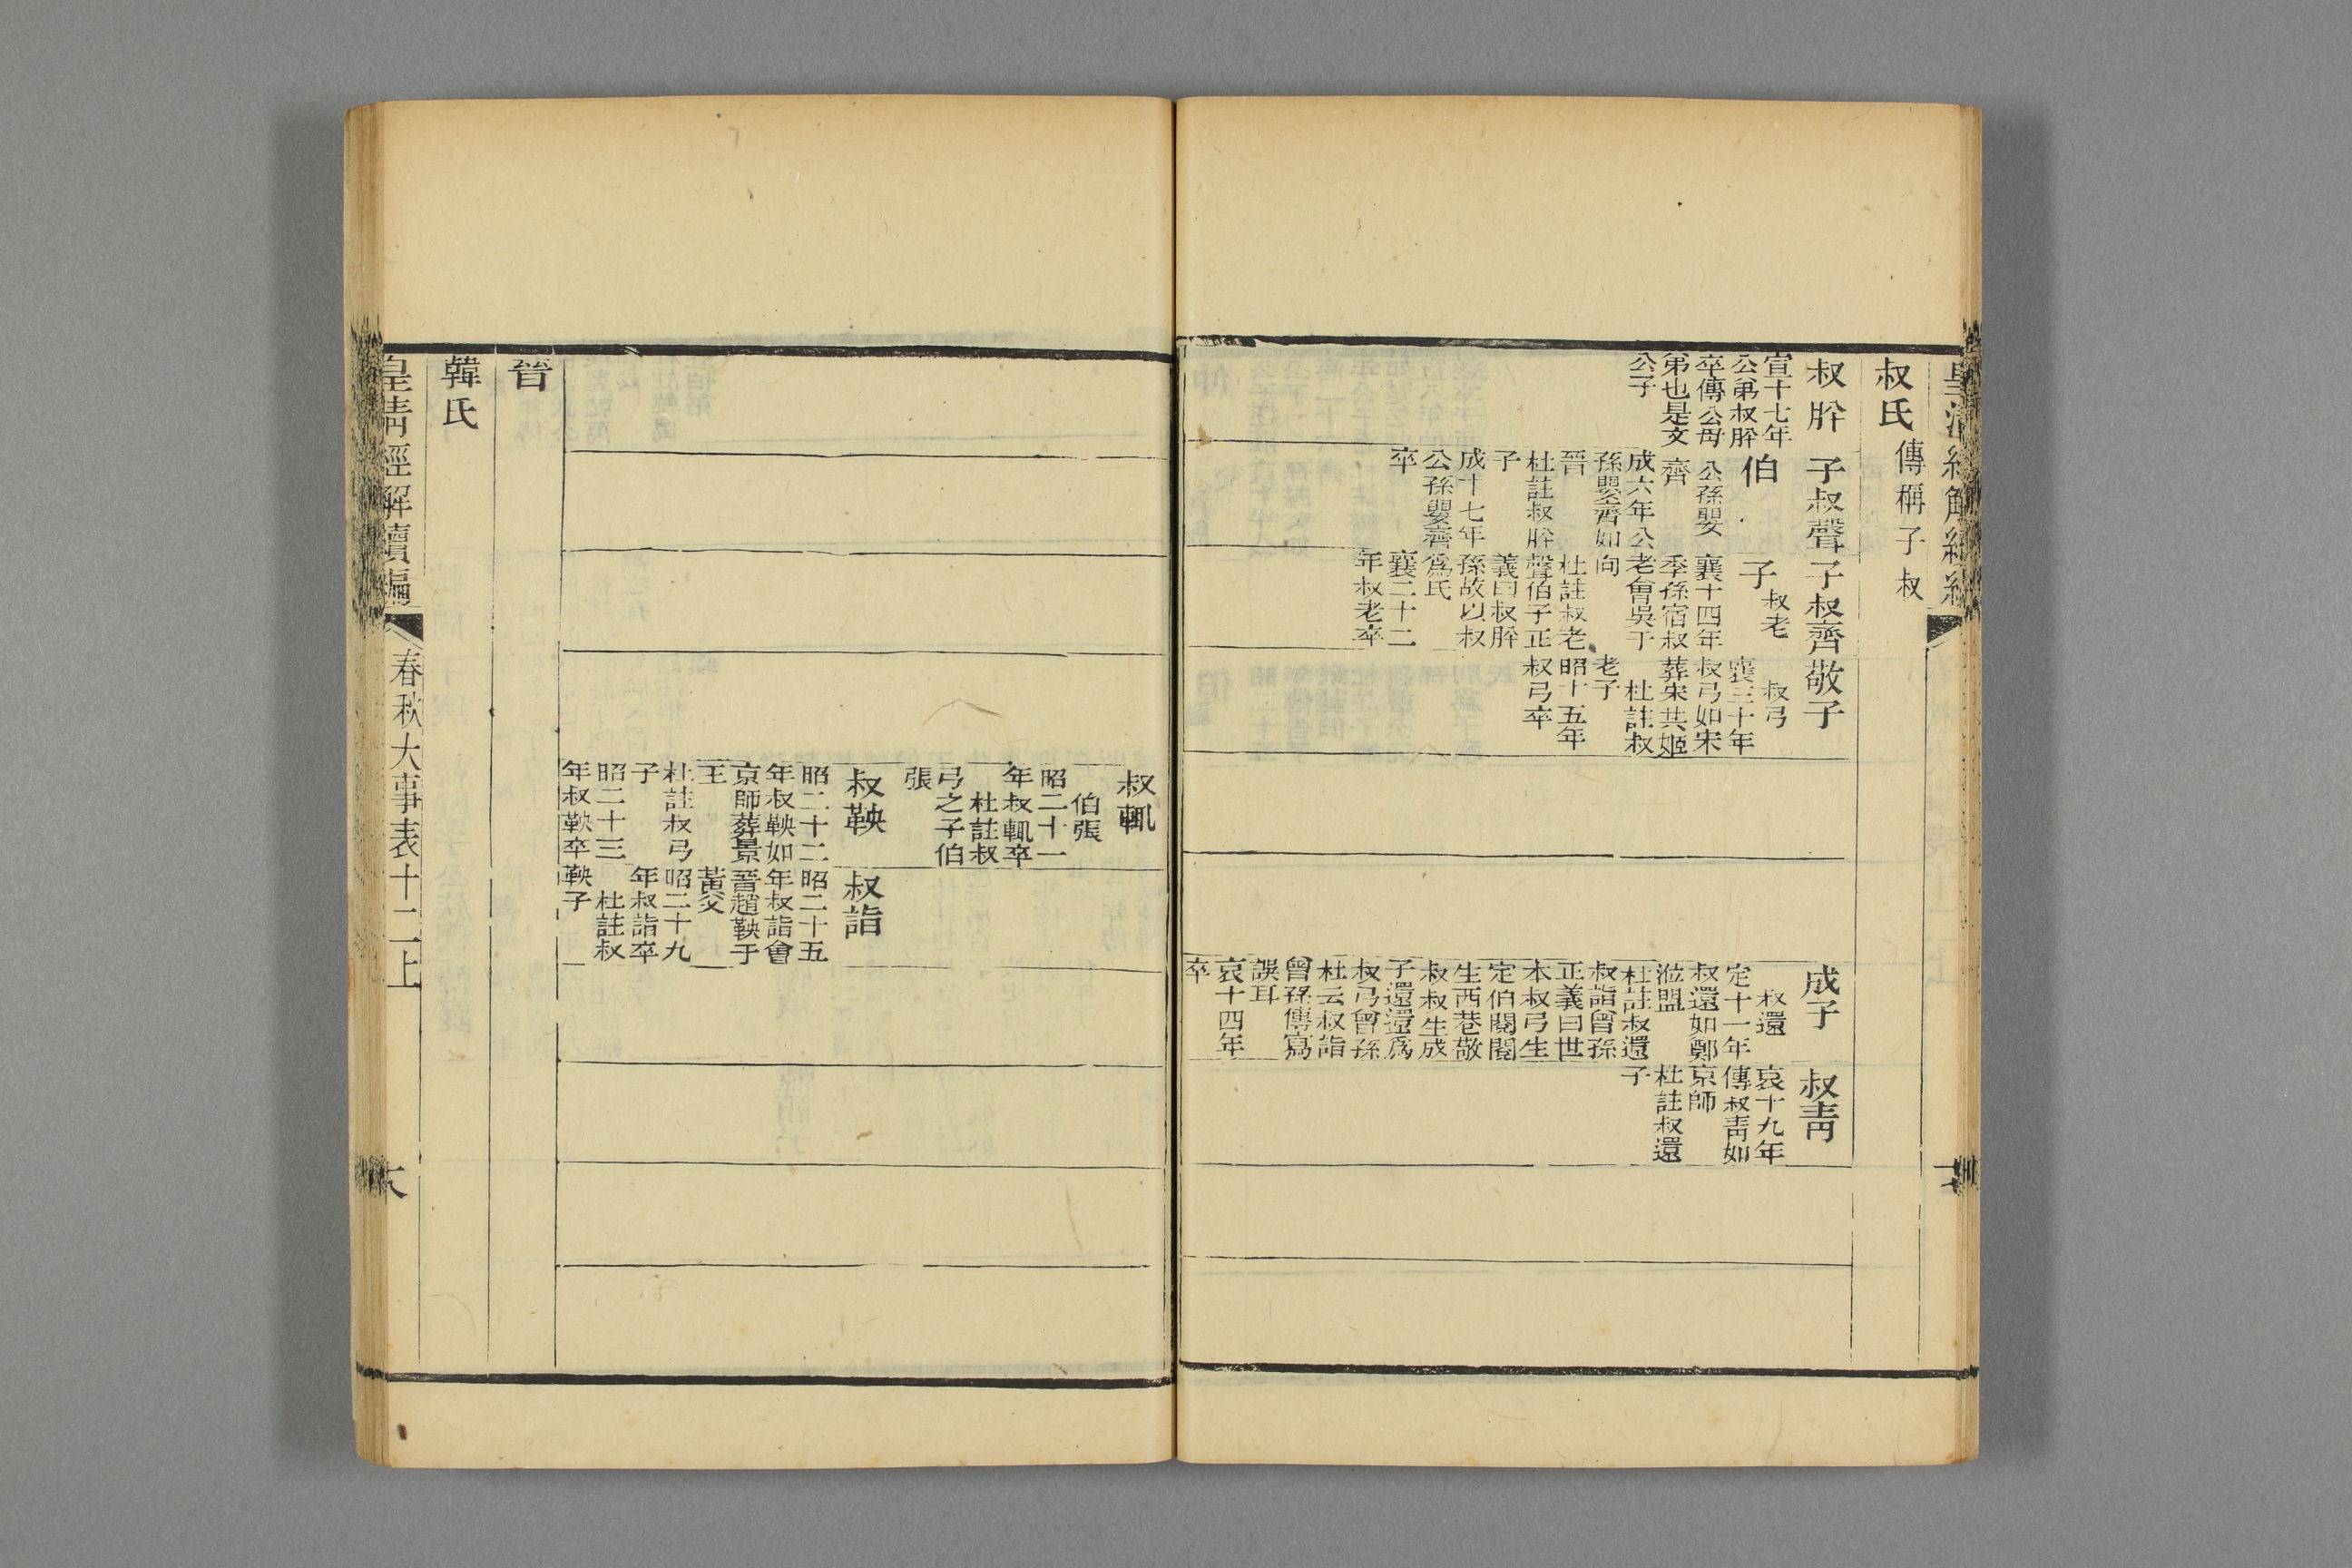 叔氏傳稱子叔
叔肸
宣十七年
公弟叔肸
卒傳公母
弟也是文
公子
子叔聲
伯
公孫嬰
齊
成六年公
孫嬰齊如
晉
杜註叔肸
子
成十七年
公孫嬰齊
卒
子叔齊
子叔老
襄十四年
季孫宿叔
老會吳于
向
杜註叔老
聲伯子正
義曰叔肸
孫故以叔
爲氏
襄二十二
年叔老卒
敬子
叔弓
襄三十年
叔弓如宋
葬宋共姬
杜註叔
老子
昭十五年
叔弓卒
成子
叔還
定十一年
叔還如鄭
涖盟
杜註叔還
叔詣曾孫
正義曰世
本叔弓生
定伯閱閱
生西巷敬
叔叔生成
子還還爲
叔弓曾孫
杜云叔詣
曾孫傳寫
誤耳
哀十四年
卒
叔青
哀十九年
傳叔青如
京師
杜註叔還
子
叔輒
伯張
昭二十一
年叔輒卒
杜註叔
弓之子伯
張
叔鞅
昭二十二
年叔鞅如
京師葬景
王
杜註叔弓
子
昭二十三
年叔鞅卒
叔詣
昭二十五
年叔詣會
晉趙鞅于
黃父
昭二十九
年叔詣卒
杜註叔
鞅子
晉
韓氏
皇清經解續編
春秋大事表十二上